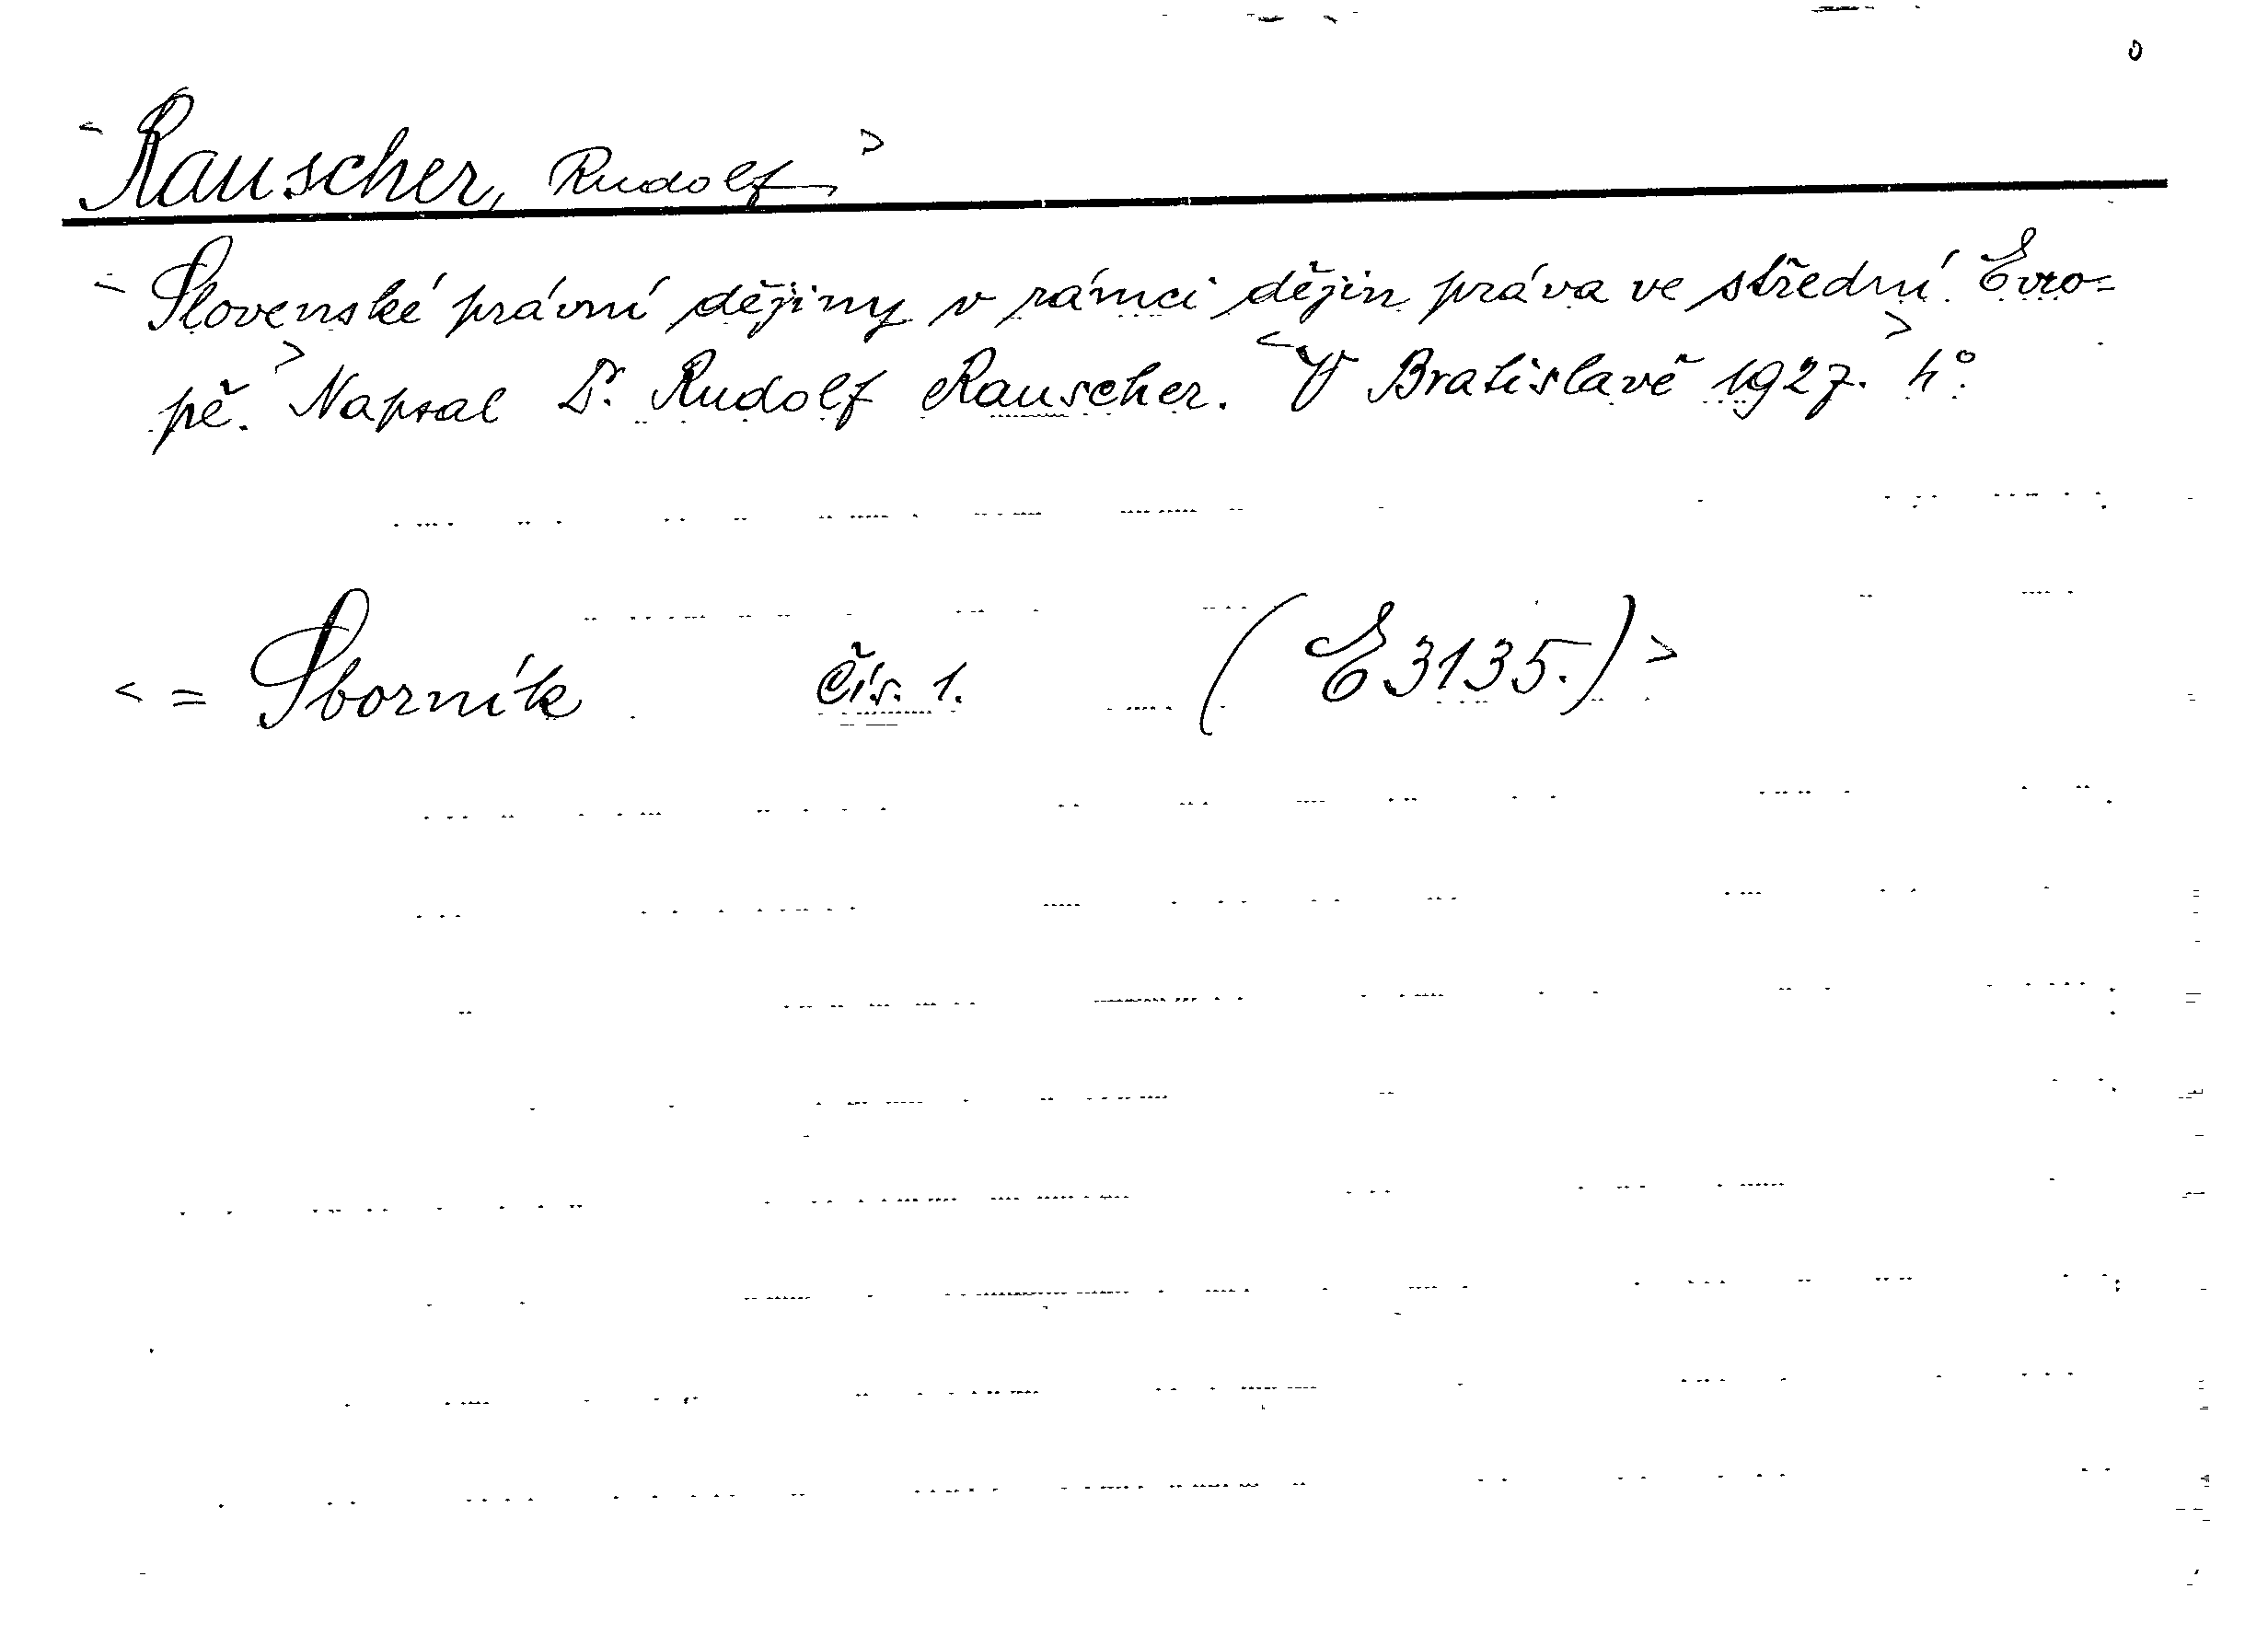 <Rauscher, Rudolf>
<Slovenské právní dějiny v rámci dějin práva ve střední Evro=
pě.> Napsal Dr. Rudolf Rauscher. <V Bratislavě 1927.> 4°.
<= Sborník čís. 1. (E 3135.)>